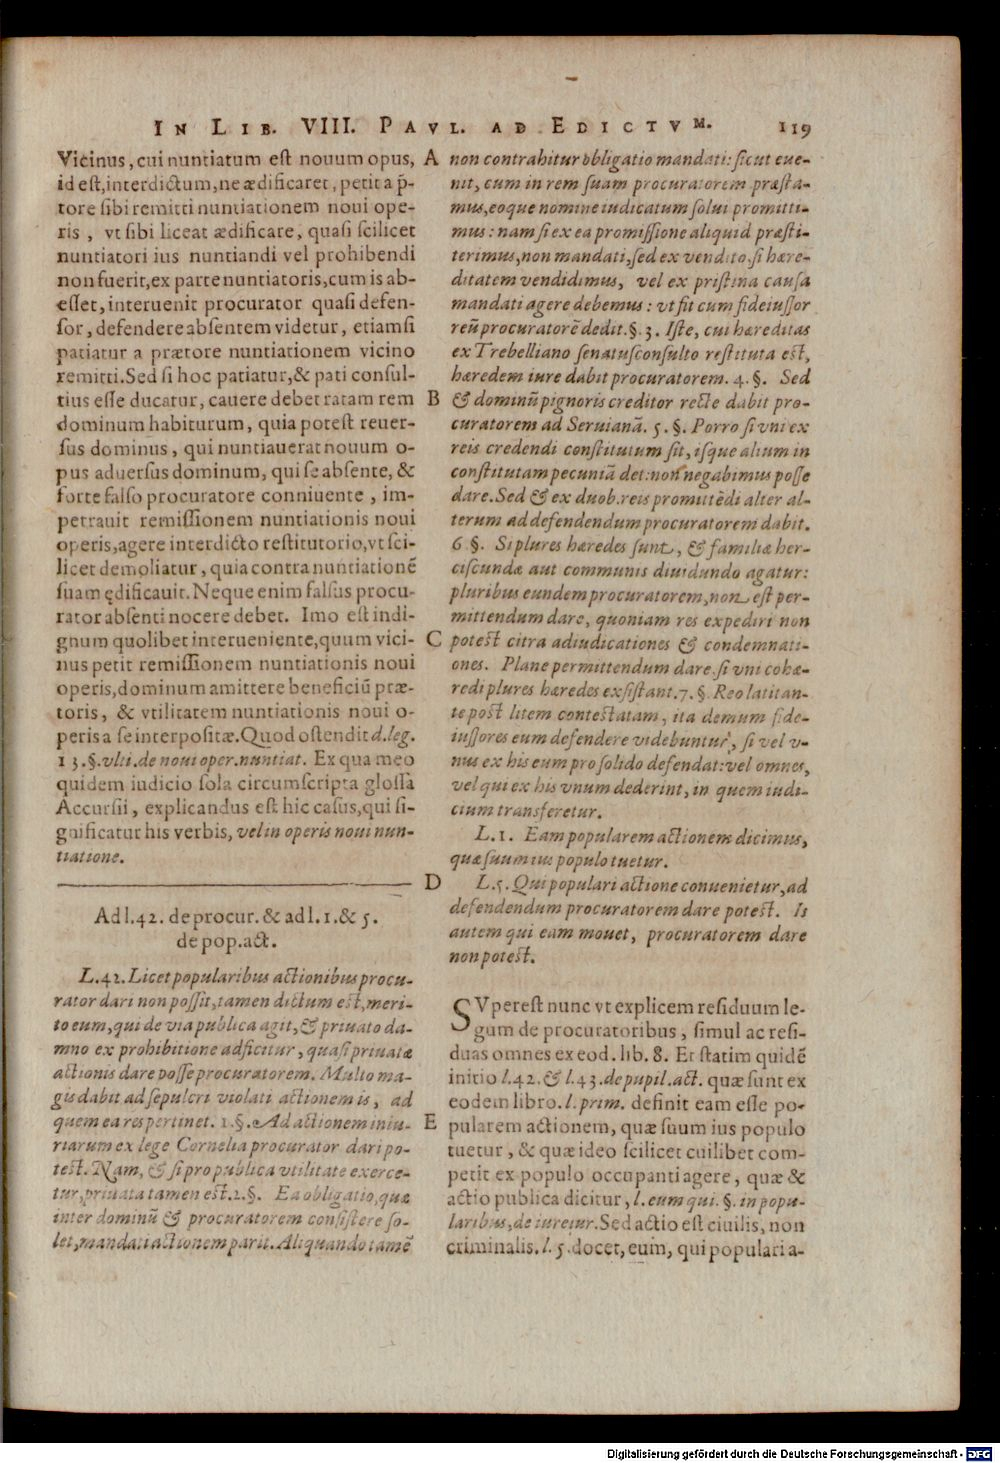 IN LIB. VIII. PAVL. AD EDICTVM. 119
Vicinus, cui nuntiatum est nouum opus,
id est, interdictum, ne ædificaret, petit a p̄-
tore sibi remitti nuntiationem noui ope-
ris , vt sibi liceat ædificare, quasi scilicet
nuntiatori ius nuntiandi vel prohibendi
non fuerit, ex parte nuntiatoris, cum is ab-
esset, interuenit procurator quasi defen-
sor, defendere absentem videtur, etiamsi
patiatur a prætore nuntiationem vicino
remitti. Sed si hoc patiatur, & pati consul-
tius esse ducatur, cauere debet ratam rem
dominum habiturum, quia potest reuer-
sus dominus, qui nuntiauerat nouum o-
pus aduersus dominum, qui se absente, &
forte falso procuratore conniuente , im-
petrauit remissionem nuntiationis noui
operis, agere interdicto restitutorio, vt sci-
licet demoliatur, quia contra nuntiationē
suam ędificauit. Neque enim falsus procu-
rator absenti nocere debet. Imo est indi-
gnum quolibet interueniente, quum vici-
nus petit remissionem nuntiationis noui
operis, dominum amittere beneficiū præ-
toris, & vtilitatem nuntiationis noui o-
peris a se interpositæ. Quod ostendit d. leg.
13. §. vlti. de noui oper. nuntiat. Ex qua meo
quidem iudicio sola circumscripta glossa
Accursii, explicandus est hic casus, qui si-
gnificatur his verbis, vel in operis noui nun-
tiatione.
Ad l. 42. de procur. & ad l. 1. & 5.
de pop. act.
L. 42. Licet popularibus actionibus procu-
rator dari non possit, tamen dictum est, meri-
to eum, qui de via publica agit, & priuato da-
mno ex prohibitione adficitur, quasi priuatæ
actionis dare posse procuratorem. Multo ma-
gis dabit ad sepulcri violati actionem is, ad
quem ea res pertinet. 1. §. Ad actionem iniu-
riarum ex lege Cornelia procurator dari po-
test. Nam, & si pro publica vtilitate exerce-
tur, priuata tamen est. 2. §. Ea obligatio, quæ
inter dominū & procuratorem consistere so-
let, mandati actionem parit. Aliquando tamē
A
B
C
D
E
non contrahitur obligatio mandati: sicut eue-
nit, cum in rem suam procuratorem præsta-
mus, eoque nomine iudicatum solui promitti-
mus: nam si ex ea promissione aliquid præsti-
terimus, non mandati, sed ex vendito, si hære-
ditatem vendidimus, vel ex pristina causa
mandati agere debemus: vt fit cum fideiussor
reū procuratorē dedit. §. 3. Iste, cui hæreditas
ex Trebelliano senatusconsulto restituta est,
hæredem iure dabit procuratorem. 4. §. Sed
& dominū pignoris creditor recte dabit pro-
curatorem ad Seruianā. 5. §. Porro si vni ex
reis credendi constitutum sit, isque alium in
constitutam pecuniā det: non negabimus posse
dare. Sed & ex duob. reis promittēdi alter al-
terum ad defendendum procuratorem dabit.
6 §. Si plures hæredes sunt, & familiæ her-
ciscundæ aut communis diuidundo agatur:
pluribus eundem procuratorem, non est per-
mittendum dare, quoniam res expediri non
potest citra adiudicationes & condemnati-
ones. Plane permittendum dare, si vni cohæ-
redi plures hæredes exsistant. 7. §. Reo latitan-
te post litem contestatam, ita demum fide-
iussores eum defendere videbuntur, si vel v-
nus ex his eum pro solido defendat: vel omnes,
vel qui ex his vnum dederint, in quem iudi-
cium transferetur.
L. 1. Eam popularem actionem dicimus,
quæ suum ius populo tuetur.
L. 5. Qui populari actione conuenietur, ad
defendendum procuratorem dare potest. Is
autem qui eam mouet, procuratorem dare
non potest.
SVperest nunc vt explicem residuum le-
gum de procuratoribus, simul ac resi-
duas omnes ex eod. lib. 8. Et statim quidē
initio l. 42. & l. 43. de pupil. act. quæ sunt ex
eodem libro. l. prim. definit eam esse po-
pularem actionem, quæ suum ius populo
tuetur, & quæ ideo scilicet cuilibet com-
petit ex populo occupanti agere, quæ &
actio publica dicitur, l. eum qui. §. in popu-
laribus, de iureiur. Sed actio est ciuilis, non
criminalis. l. 5. docet, eum, qui populari a-
Digitalisierung gefördert durch die Deutsche Forschungsgemeinschaft - DFG